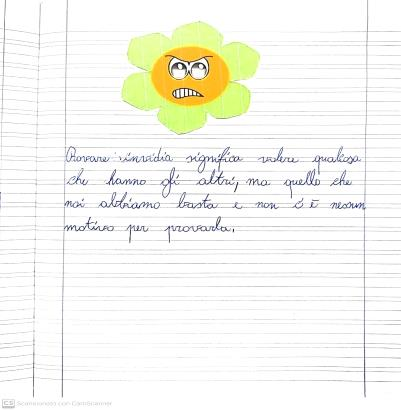 Provare invidia significa volere qualcosa
che hanno gli altri, ma quello che
noi abbiamo basta e non c'è nessun
motivo per provarla.
CS Scansionato con CamScanner